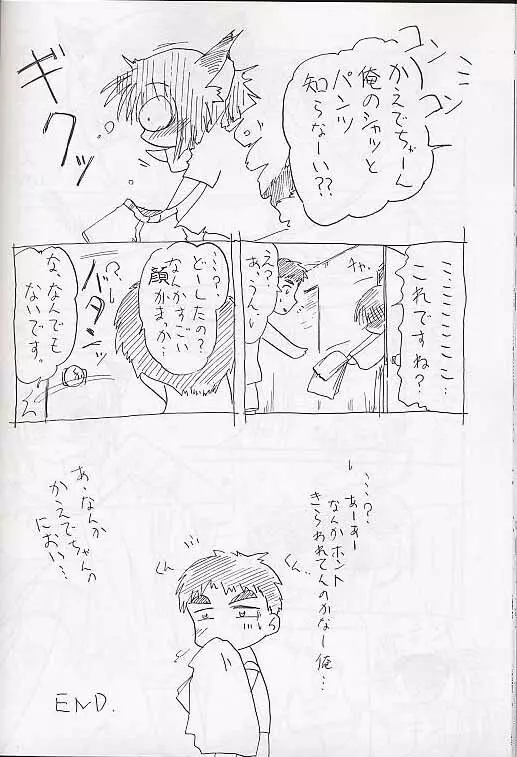 コンコン
コン
かえでちゃーん
俺のシャツと
パンツ
知らなーい??
ギクッ
こ、こここここ…
これですね?…
チャ、
え?
あ、うん…
…?
どーしたの?
なんかすごい
顔がまっか…
バタンッ
な、なんでも
ないです。
…?
あーあー
なんかホント
きらわれてんのかなー俺…
くん…
くん
あ、なんか
かえでちゃんの
におい…
END.